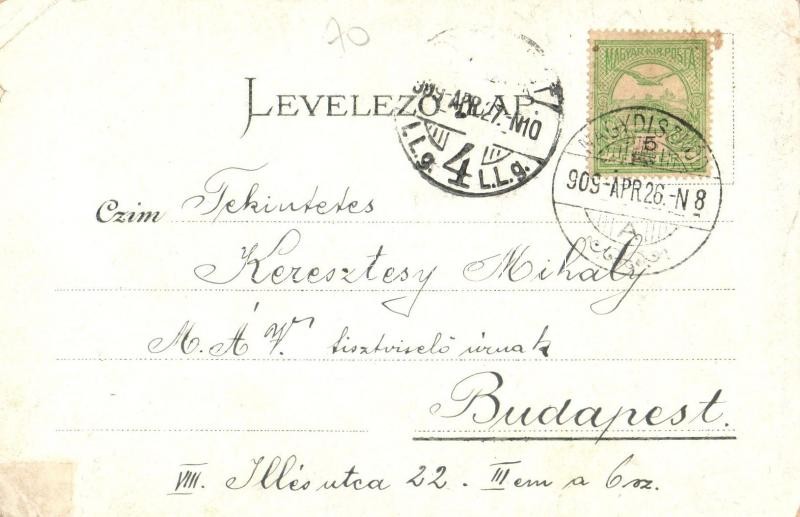 70
LEVELEZŐ-LAP.
MAGYAR KIR. POSTA
5
909-APR.27.-N10
I.L.g. 4 L.L.g.
NAGYDISZNÓD
909-ÁPR.26.-N 8
A
Czim Tekintetes
Keresztesy Mihály
M. Á V. tisztviselő úrnak
Budapest.
VIII. Illés utca 22. III em a 6sz.